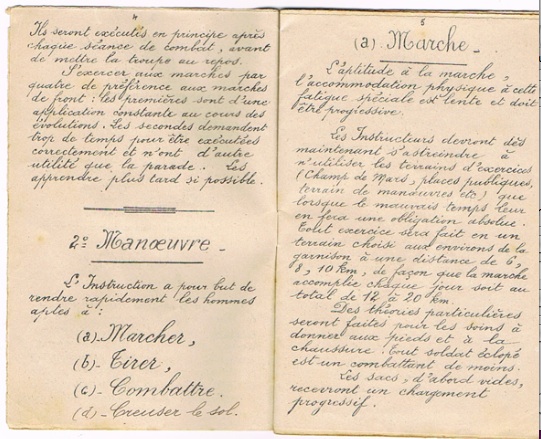 4
Ils seront exécutés en principe après
chaque séance de combat, avant
de mettre la troupe au repos.
S'exercer aux marches par
quatre de préférence aux marches
de front : les premières sont d'une
application constante au cours des
évolutions. Les secondes demandent
trop de temps pour être exécutées
correctement et n'ont d'autre
utilité que la parade. Les
apprendre plus tard si possible.
2º Manœuvre_
L'Instruction a pour but de
rendre rapidement les hommes
aptes à :
(a)_Marcher,
(b)_Tirer,
(c)_Combattre.
(d)_Creuser le sol.
5
(a) Marche_
L'aptitude à la marche,
l'accommodation physique à cette
fatigue spéciale est lente et doit
être progressive.
Les Instructeurs devront dès
maintenant s'astreindre à
n'utiliser les terrains d'exercices
(Champ de Mars, places publiques,
terrain de manœuvres etc.) que
lorsque le mauvais temps leur
en fera une obligation absolue.
Tout exercice sera fait en un
terrain choisi aux environs de la
garnison à une distance de 6,
8, 10 Km, de façon que la marche
accomplie chaque jour soit au
total de 12 à 20 Km.
Des théories particulières
seront faites pour les soins à
donner aux pieds et à la
chaussure. Tout soldat éclopé
est un combattant de moins.
Les sacs, d'abord vides,
recevront un chargement
progressif.